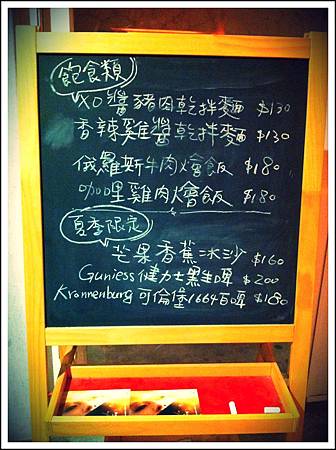 飽食類
XO醬豬肉乾拌麵 $130
香辣雞醬乾拌麵 $130
俄羅斯牛肉燴飯 $180
咖哩雞肉燴飯 $180
夏季限定
芒果香蕉冰沙 $160
Guniess健力士黑生啤 $200
Kronnenburg可倫堡1664白啤 $180